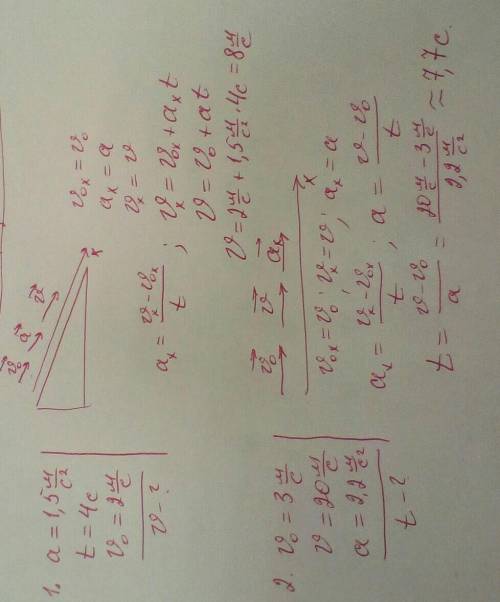 1. a = 1,5 м/с²
t = 4с
v₀ = 2 м/с
v - ?
v⃗₀ a⃗ v⃗
x
v₀ₓ = v₀
aₓ = a
vₓ = v
aₓ = (vₓ - v₀ₓ)/t ; vₓ = v₀ₓ + aₓt
v = v₀ + at
v = 2 м/с + 1,5 м/с² · 4с = 8 м/с
2. v₀ = 3 м/с
v = 20 м/с
a = 2,2 м/с²
t - ?
v⃗₀ v⃗ a⃗
x
v₀ₓ = v₀ ; vₓ = v ; aₓ = a
aₓ = (vₓ - v₀ₓ)/t ; a = (v - v₀)/t
t = (v - v₀)/a = (20 м/с - 3 м/с)/(2,2 м/с²) ≈ 7,7с.